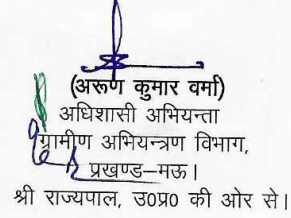 (अरूण कुमार वर्मा)
अधिशासी अभियन्ता
ग्रामीण अभियन्त्रण विभाग,
प्रखण्ड–मऊ।
श्री राज्यपाल, उ०प्र० की ओर से।